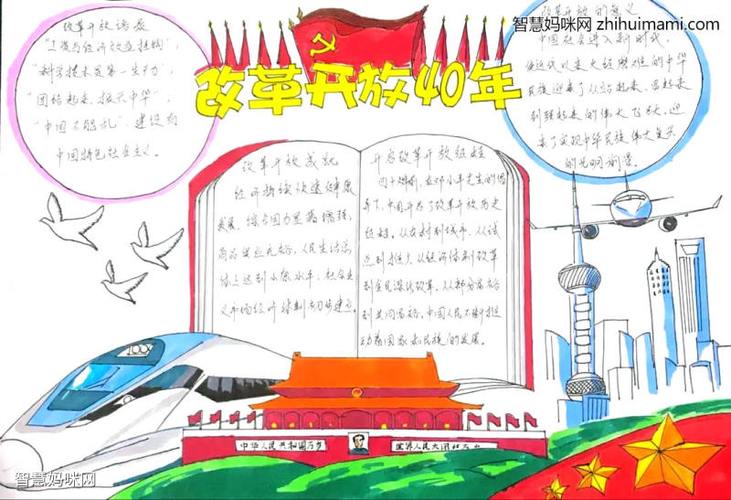 智慧妈咪网 zhihuimami.com
改革开放40年
改革开放语录
"科学技术是第一生产力",
"团结起来,振兴中华",
"中国不能乱",建设有
中国特色社会主义。
改革开放的意义
中国社会进入新时代,
意味着近代以来久经磨难的中华
民族迎来了从站起来、富起来
到强起来的伟大飞跃,迎
来了实现中华民族伟大复兴
的光明前景。
改革开放成就
经济持续快速健康
发展,综合国力显著增强,
商品供应充裕,人民生活总
体上达到小康水平,社会主
义市场经济体制初步建立。
开启改革开放征程
四十年前,在邓小平先生的倡
导下,中国开启了改革开放历史
征程。从农村到城市,从试
点到推广,从经济体制改革
到全面深化改革,
中国人民不断推
动着国家和民族的发展。
中华人民共和国万岁
世界人民大团结万岁
智慧妈咪网